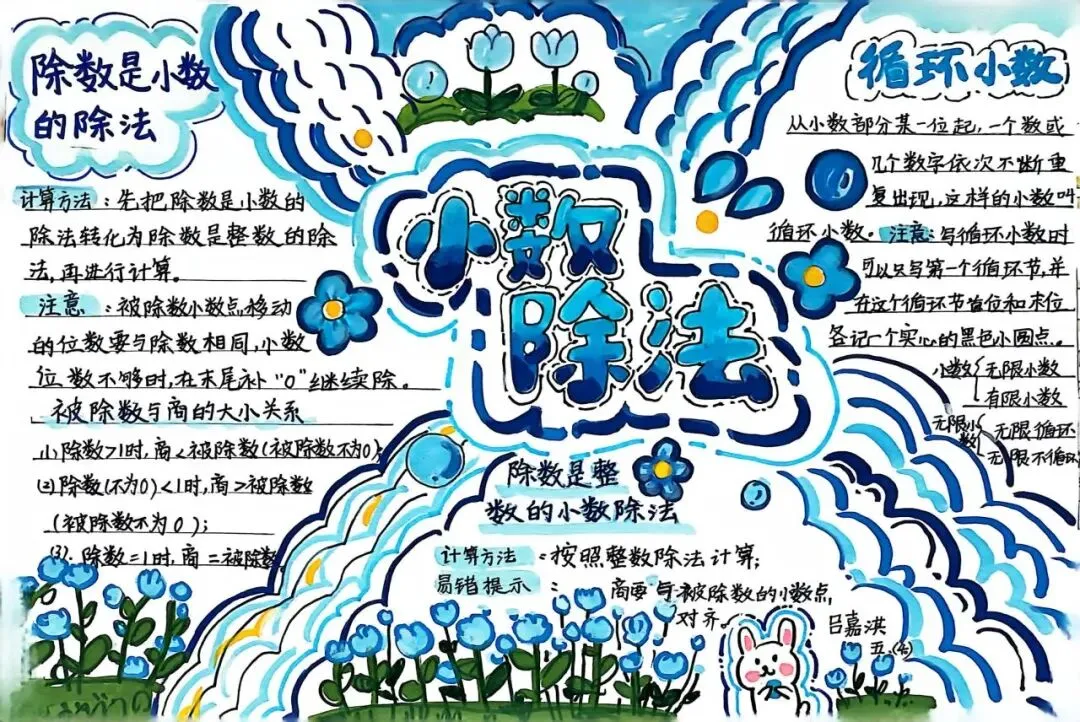 小数
除法
除数是小数
的除法
计算方法：先把除数是小数的
除法转化为除数是整数的除
法，再进行计算。
注意：被除数小数点移动
的位数要与除数相同，小数
位数不够时，在末尾补“0”继续除。
被除数与商的大小关系
(1)除数>1时，商<被除数(被除数不为0)；
(2)除数(不为0)<1时，商>被除数
(被除数不为0)；
(3).除数=1时，商=被除数
循环小数
从小数部分某一位起，一个数或
几个数字依次不断重
复出现，这样的小数叫
循环小数。注意：写循环小数时
可以只写第一个循环节，并
在这个循环节首位和末位
各记一个实心的黑色小圆点。
小数{无限小数
有限小数
无限小数{无限循环
无限不循环
除数是整
数的小数除法
计算方法：按照整数除法计算；
易错提示：商要与被除数的小数点
对齐。
吕嘉淇
五(4)